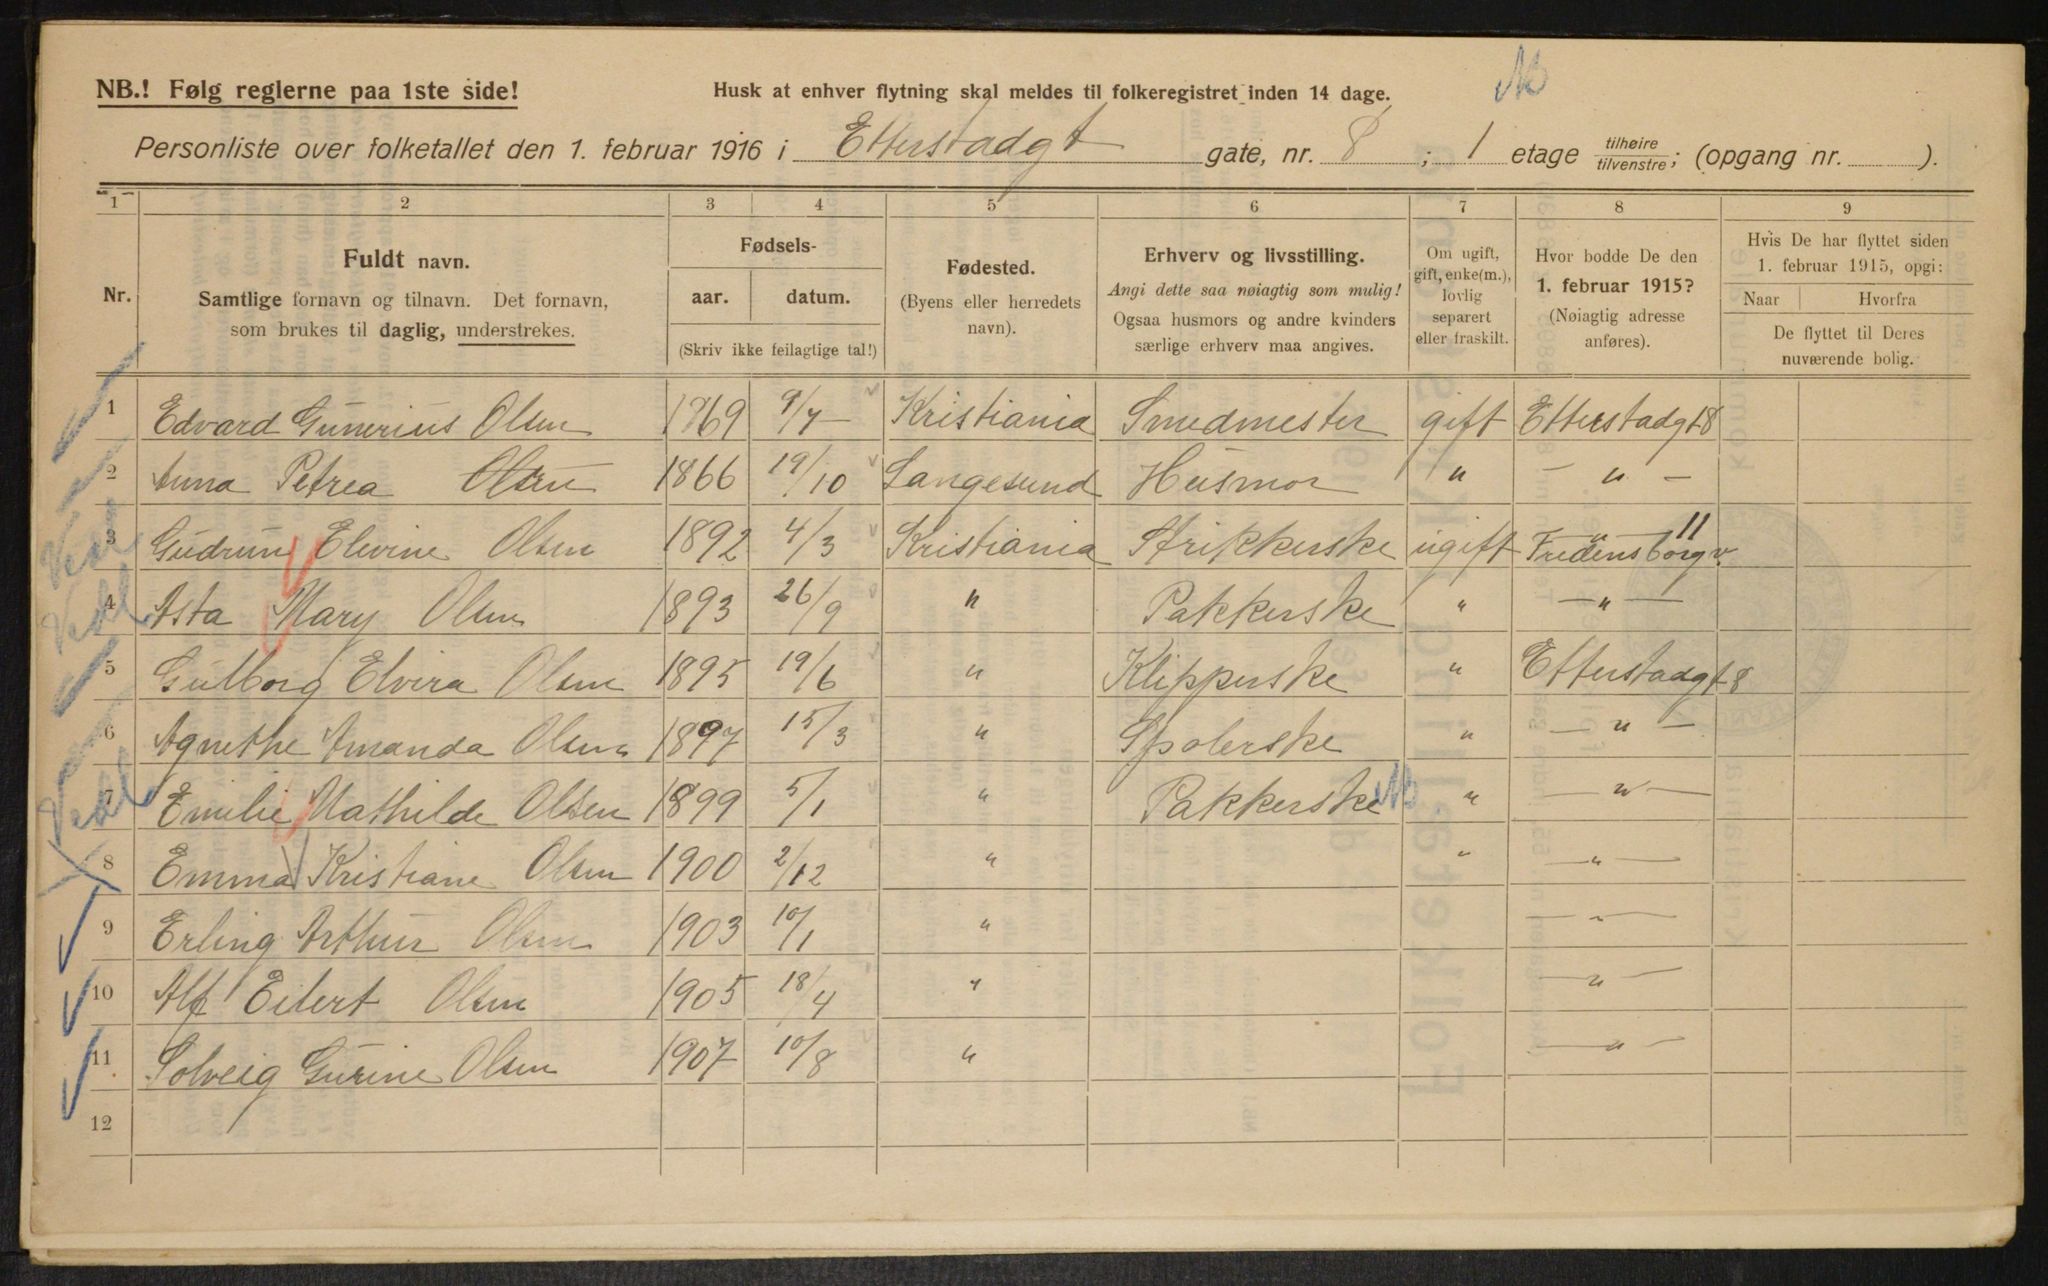 NB.! Følg reglerne paa 1ste side!
Husk at enhver flytning skal meldes til folkeregistret inden 14 dage.
Personliste over folketallet den 1. februar 1916 i Etterstadgt gate, nr. 8 ; 1 etage tilhøire tilvenstre; (opgang nr. ).
1 2 3 4 5 6 7 8 9
Nr.
Fuldt navn.
Samtlige fornavn og tilnavn. Det fornavn,
som brukes til daglig, understrekes.
Fødsels-
aar. datum.
(Skriv ikke feilagtige tal!)
Fødested.
(Byens eller herredets
navn).
Erhverv og livsstilling.
Angi dette saa nøiagtig som mulig!
Ogsaa husmors og andre kvinders
særlige erhverv maa angives.
Om ugift,
gift, enke(m.),
lovlig
separert
eller fraskilt.
Hvor bodde De den
1. februar 1915?
(Nøiagtig adresse
anføres).
Hvis De har flyttet siden
1. februar 1915, opgi:
Naar Hvorfra
De flyttet til Deres
nuværende bolig.
1 Edvard Gunerius Olsen 1869 9/7 Kristiania Smedmester gift Etterstadgt 8
2 Anna Petrea Olsen 1866 19/10 Langesund Husmor " - " -
3 Gudrun Elevine Olsen 1892 4/3 Kristiania Strikkerske ugift Fredensborgv. 11
4 Asta Mary Olsen 1893 26/9 " Pakkerske " - " -
5 Gulborg Elvira Olsen 1895 19/6 " Klipperske " Etterstadgt 8
6 Agnethe Amanda Olsen 1897 15/3 " Spolerske " - " -
7 Emilie Mathilde Olsen 1899 5/1 " Pakkerske " - " -
8 Emma Kristiane Olsen 1900 2/12 " " - " -
9 Erling Arthur Olsen 1903 10/1 " - " -
10 Alf Eilert Olsen 1905 18/4 " - " -
11 Solveig Gurine Olsen 1907 10/8 " - " -
12